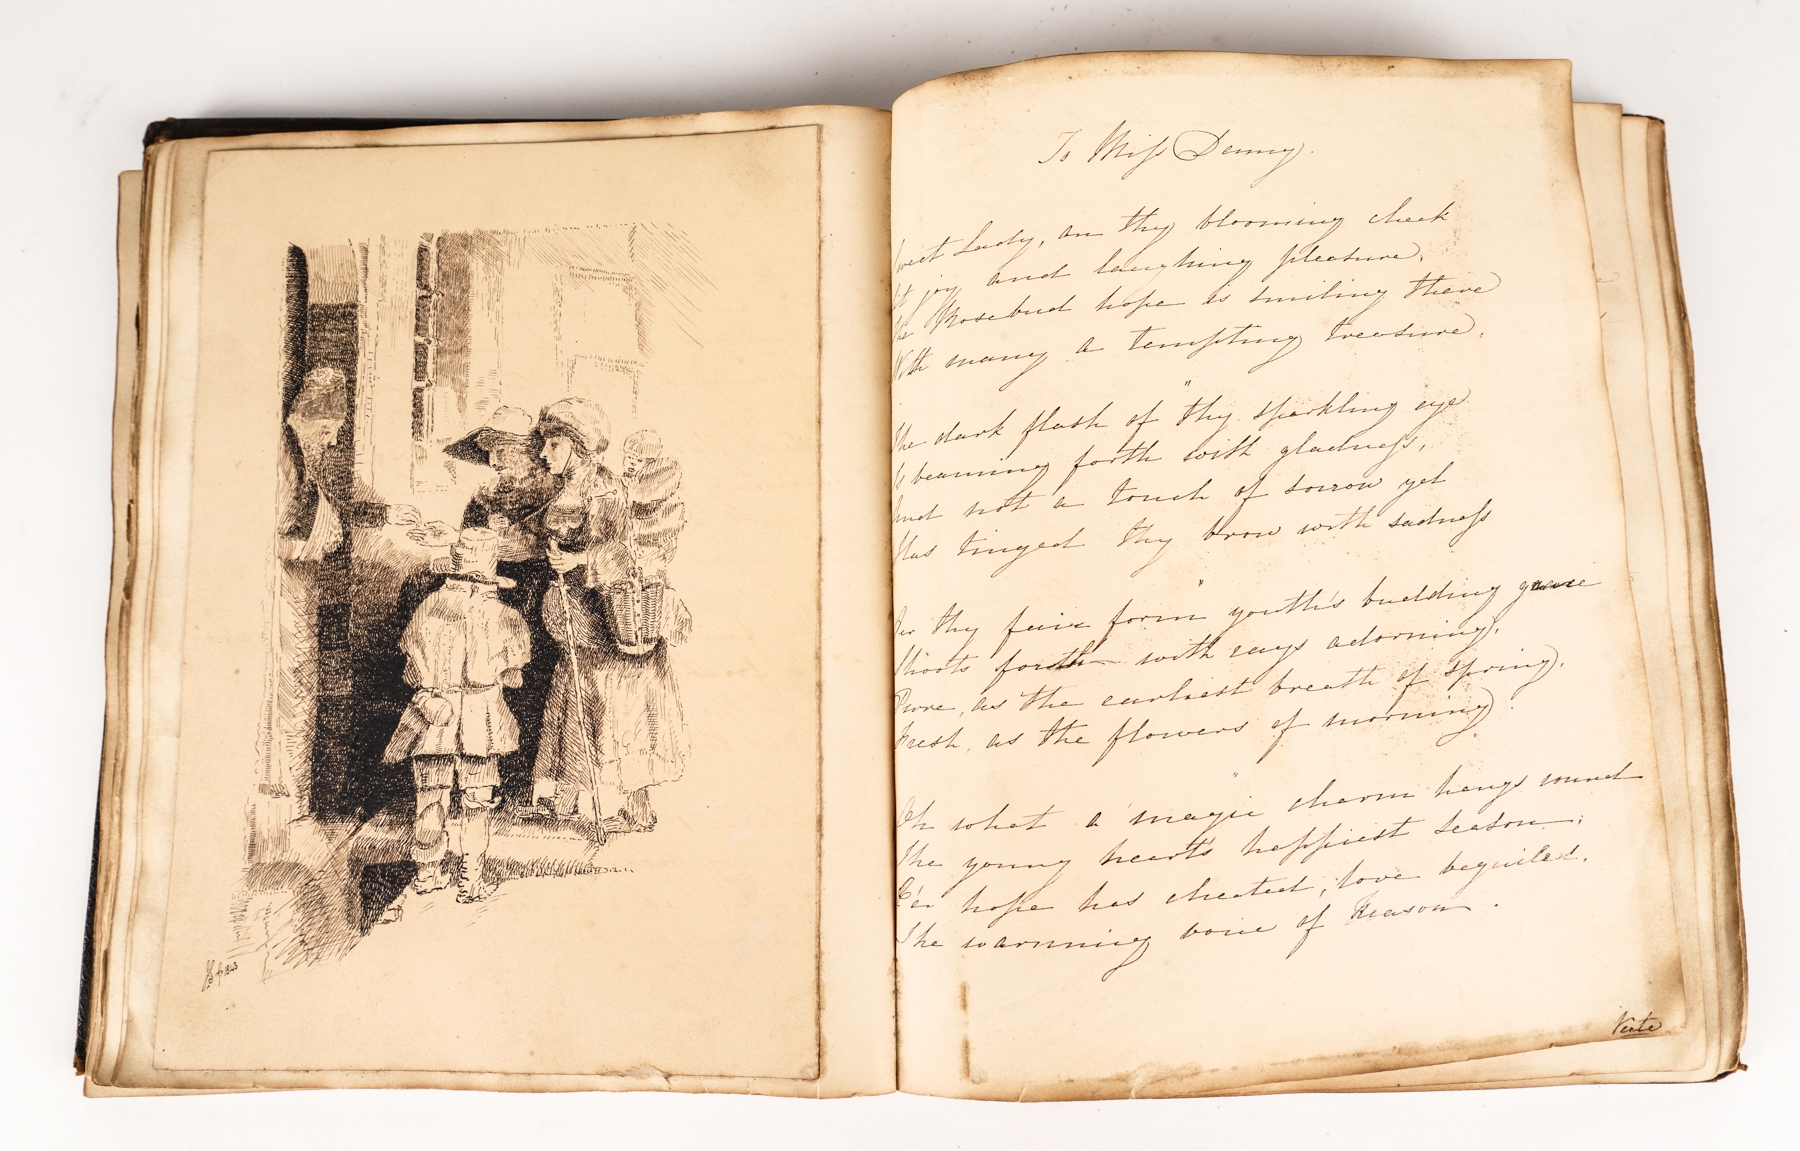 1843
To Miss Denny.
Lady, on thy blooming cheek
joy and laughing pleasure,
Rosebud hope is smiling there
With many a tempting treasure.
The dark flash of "thy sparkling eye
Is beaming forth with gladness,
And not a touch of sorrow yet
Has tinged thy brow with sadness
thy fair form" youth's budding
Shoots forth with rays adorning,
Pure, as the earliest breath of spring,
Fresh, as the flowers of morning.
Oh what a "magic charm hangs round
The young heart's happiest season;
E'er hope has cheated, love beguiled,
The warning voice of Reason.
Verte